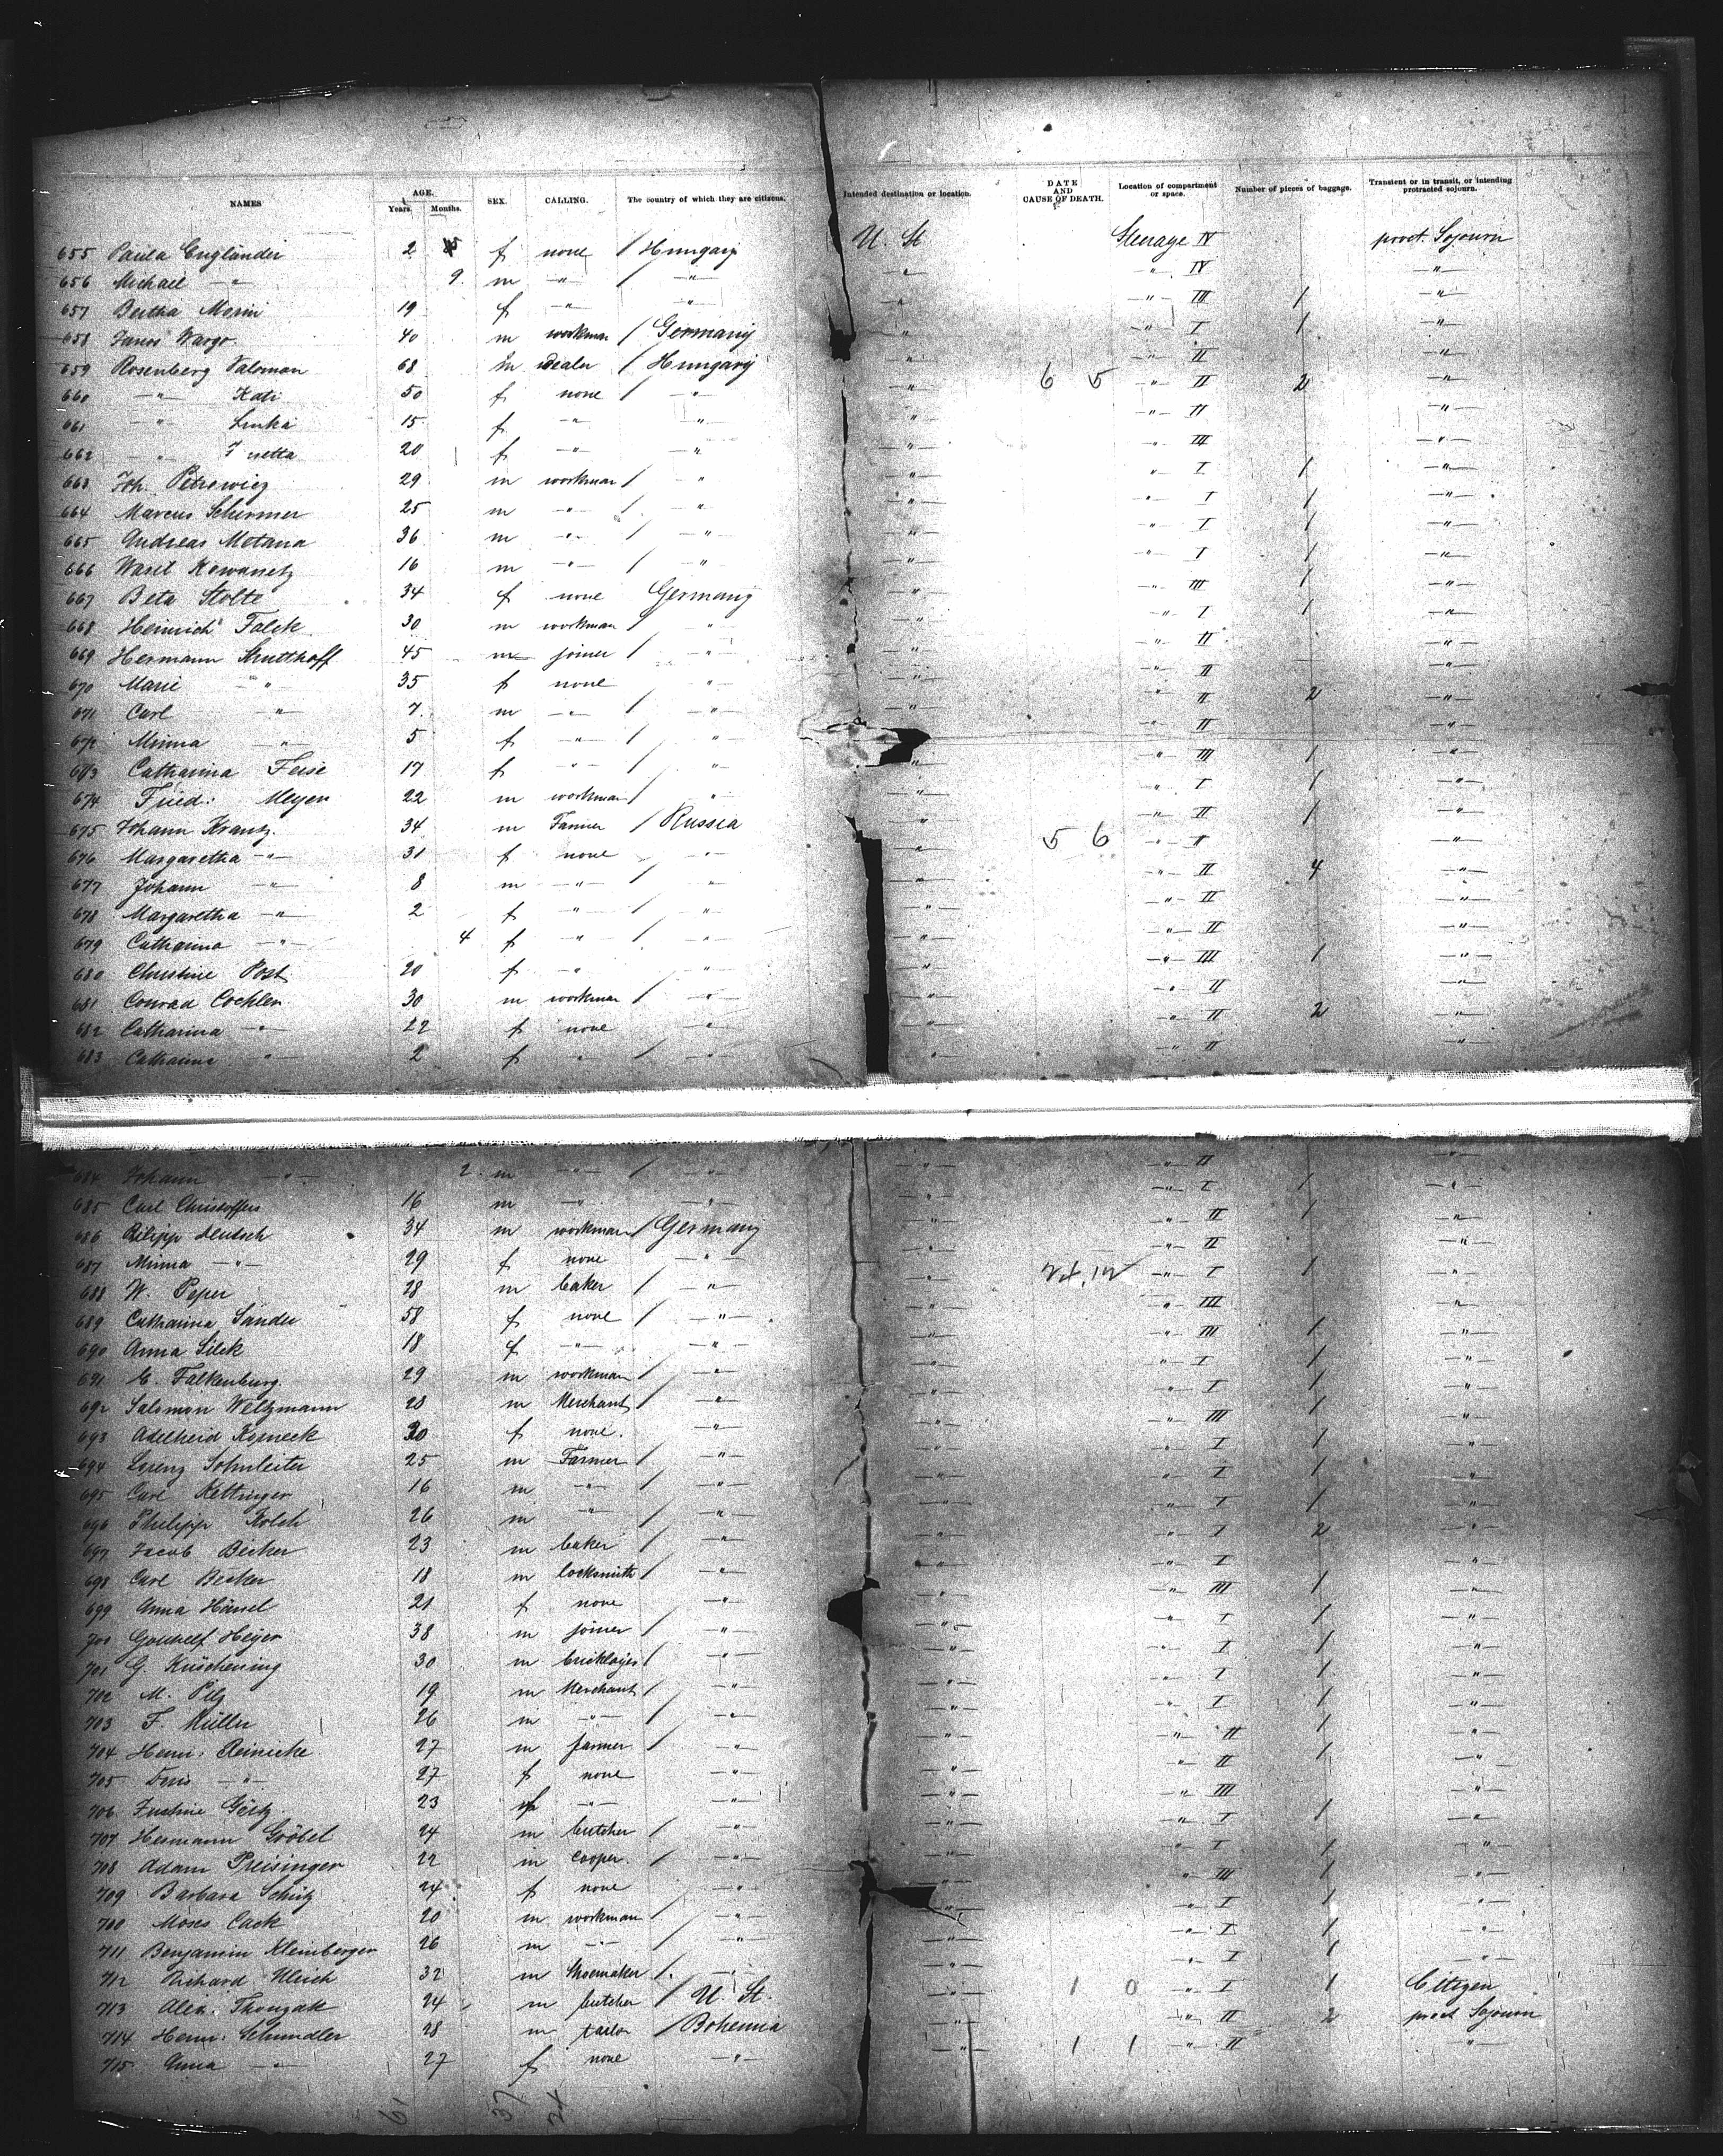 NAMES AGE. Years. Months. SEX. CALLING. The country of which they are citizens. Intended destination or location. DATE AND CAUSE OF DEATH. Location of compartment or space. Number of pieces of baggage. Transient or in transit, or intending protracted sojourn.
655 Paula Engländer 2 f none / Hungary U. St Steerage IV proct. Sojourn
656 Michael -"- 9. m -"- / -"- -"- -"- IV -"-
657 Bertha Morini 19 f -"- -"- -"- -"- III 1 -"-
658 Janos Wargo. 40 m workman / Germany -"- -"- I 1 -"-
659 Rosenberg Salomon 68 m dealer / Hungary -"- -"- II -"-
660 -"- Kati 50 f none / -"- -"- 6 5 -"- II 2 -"-
661 -"- Linka 15 f -"- -"- -"- -"- II -"-
662 -"- netta 20 f -"- -"- -"- -"- III -"-
663 Joh. Petrewicz 29 m workman / -"- -"- -"- I 1 -"-
664 Marcus Schirmer 25 m -"- / -"- -"- -"- I 1 -"-
665 Andreas Metana 36 m -"- / -"- -"- -"- I 1 -"-
666 Wasil Kowanetz 16 m -"- / -"- -"- -"- I 1 -"-
667 Beta Stolte 34 f none Germany -"- -"- III 1 -"-
668 Heinrich Falck 30 m workman / -"- -"- -"- I 1 -"-
669 Hermann Strutthoff 45 m joiner / -"- -"- -"- II -"-
670 Marie -"- 35 f none -"- -"- -"- II -"-
671 Carl -"- 7. m -"- / -"- -"- -"- II 2 -"-
672 Minna -"- 5 f -"- / -"- -"- II -"-
673 Catharina Feise 17 f -"- / -"- -"- -"- III 1 -"-
674 Fried: Meyer 22 m workman / -"- -"- -"- I 1 -"-
675 Johann Krantz. 34 m Farmer / Russia -"- -"- II 1 -"-
676 Margaretha -"- 31 f none -"- -"- 5 6 -"- II -"-
677 Johann -"- 8 m -"- / -"- -"- -"- II 4 -"-
678 Margaretha -"- 2 f -"- / -"- -"- -"- II -"-
679 Catharina -"- 4 f -"- / -"- -"- -"- II -"-
680 Christine Post 20 f -"- -"- -"- -"- III 1 -"-
681 Conrad Cochler 30 m workman / -"- -"- -"- II -"-
682 Catharina -"- 22 f none -"- -"- -"- II 2 -"-
683 Catharina -"- 2 f -"- / -"- -"- -"- II -"-
684 Johann -"- 2. m -"- / -"- -"- -"- II -"-
685 Carl Christoffers 16 m -"- -"- -"- -"- I 1 -"-
686 Pilipp Deutsch 34 m workman / Germany -"- II 1 -"-
687 Minna -"- 29 f none -"- -"- -"- II -"-
688 W. Peper 28 m baker / -"- -"- -"- I 1 -"-
689 Catharina Sander 58 f none / -"- -"- -"- III -"-
690 Anna Silck 18 f -"- -"- -"- -"- III 1 -"-
691 E. Falkenburg. 29 m workman / -"- -"- -"- I 1 -"-
692 Salomon Weltzmann 28 m Merchant / -"- -"- -"- I 1 -"-
693 Adelheid 20 f none. -"- -"- -"- III 1 -"-
694 Lorenz Sohnleiter 25 m Farmer / -"- -"- -"- I 1 -"-
695 Carl Kettinger 16 m -"- / -"- -"- -"- I 1 -"-
696 Philipp Kolsch 26 m -"- / -"- -"- -"- I 1 -"-
697 Jacob Becker 23 m baker / -"- -"- -"- I 2 -"-
698 Carl Becker 18 m locksmith / -"- -"- -"- I -"-
699 Anna Hänsel 21 f none -"- -"- -"- III 1 -"-
700 Gotthelf Heyer 38 m joiner / -"- -"- -"- I 1 -"-
701 G. Küschening 30 m bricklayer / -"- -"- -"- I 1 -"-
702 M. Pilz 19 m Merchant / -"- -"- -"- I 1 -"-
703 F. Müller 26 m -"- / -"- -"- -"- I 1 -"-
704 Henr: Reinicke 27 m farmer / -"- -"- -"- II 1 -"-
705 Doris -"- 27 f none -"- -"- -"- II -"-
706 Justine Görtz. 23 f -"- -"- -"- -"- III -"-
707 Hermann Gröbel 24 m butcher / -"- -"- -"- I 1 -"-
708 Adam Preisinger 22 m Cooper. / -"- -"- -"- I 1 -"-
709 Barbara Schütz 24 f none -"- -"- -"- III 1 -"-
700 Moses Cack 20 m workman / -"- -"- -"- I 1 -"-
711 Benjamin Kleinberger 26 m -"- / -"- -"- -"- I 1 -"-
712 Richard Ulrich 32 m Shoemaker / -"- -"- -"- I 1 -"-
713 Alex. 24 m butcher / U. St. -"- 1 0 -"- I 1 Citizen
714 Herm: Schindler 28 m tailor / Bohemia -"- -"- II 2 proct Sojourn
715 Anna -"- 27 f none -"- -"- 1 1 -"- II -"-
61 37 24